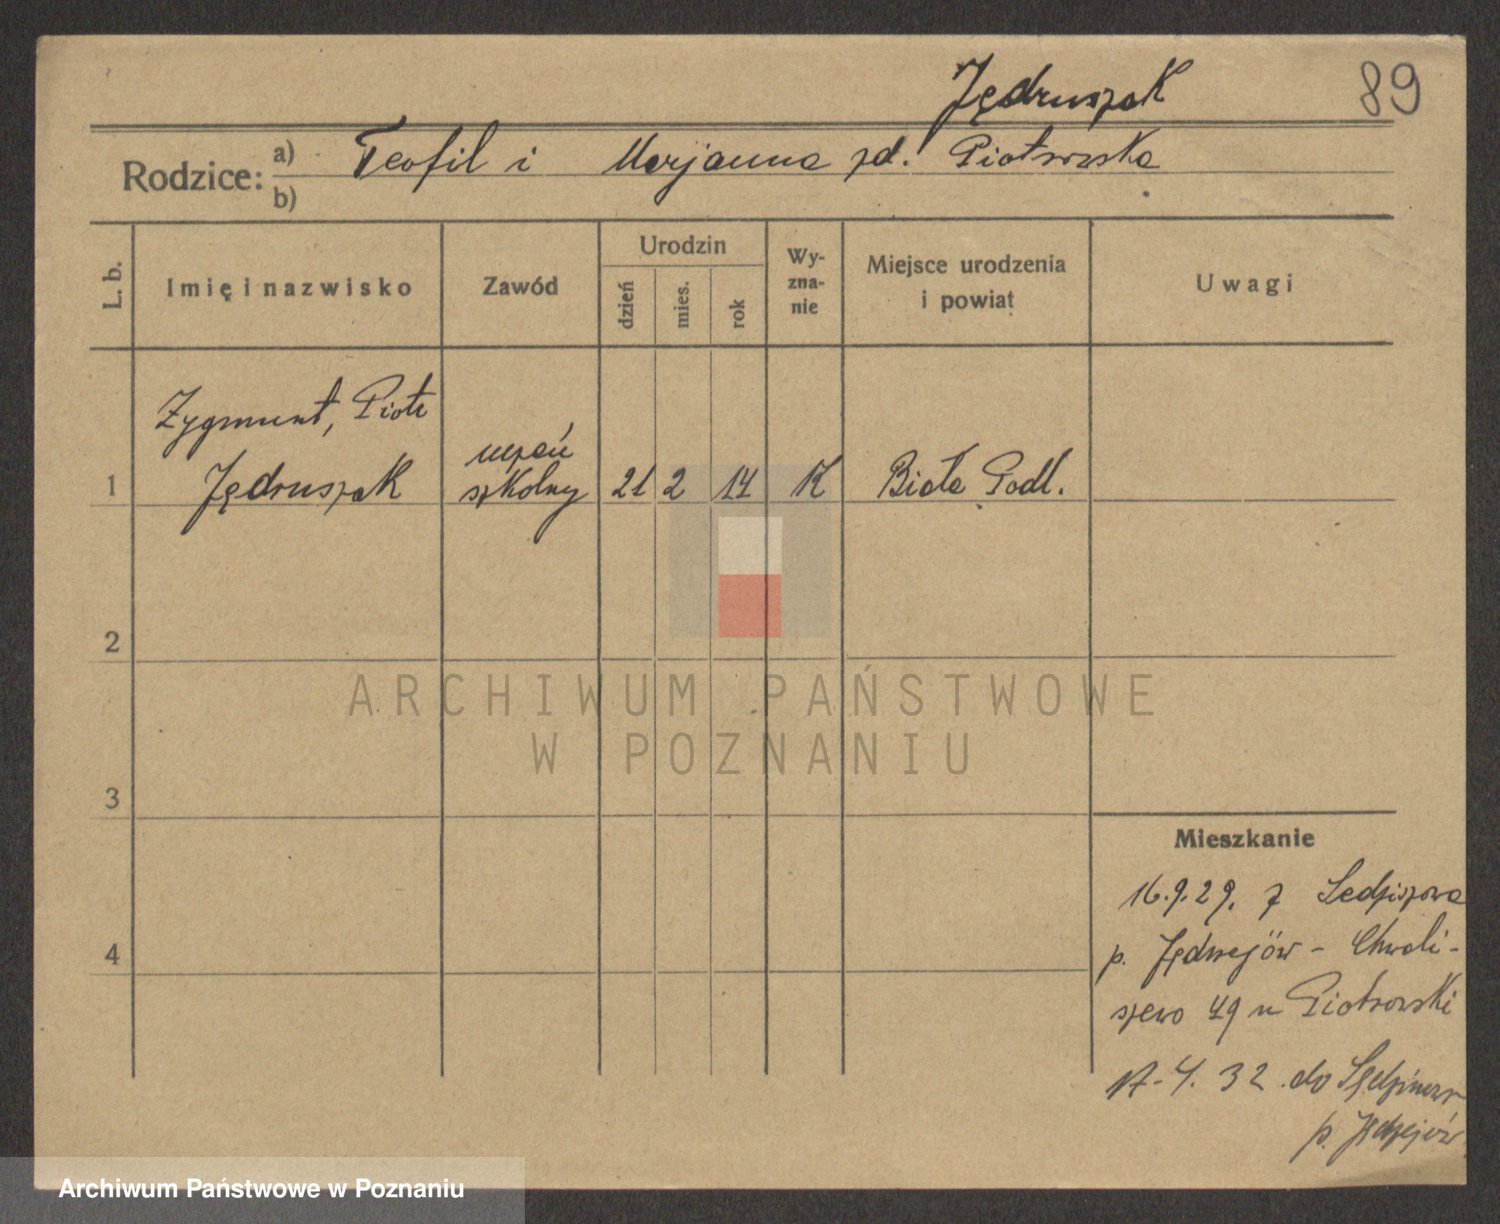 Jędruszak
89
Rodzice: a) Teofil i Marjanna zd. Piotrowska
b)
L. b.
Imię i nazwisko
Zawód
Urodzin
dzień
mies.
rok
Wy-
zna-
nie
Miejsce urodzenia
i powiat
Uwagi
Zygmunt, Piotr
uczeń
1 Jędruszak szkolny 21 2 14 K Biała Podl.
2
ARCHIWUM PAŃSTWOWE
W POZNANIU
3
Mieszkanie
16.9.29. z Sędziszowa
p. Jędrzejów - Chwali-
szewo 49 u Piotrowski
4
17.4.32 do
p. Jędrzejów
Archiwum Państwowe w Poznaniu